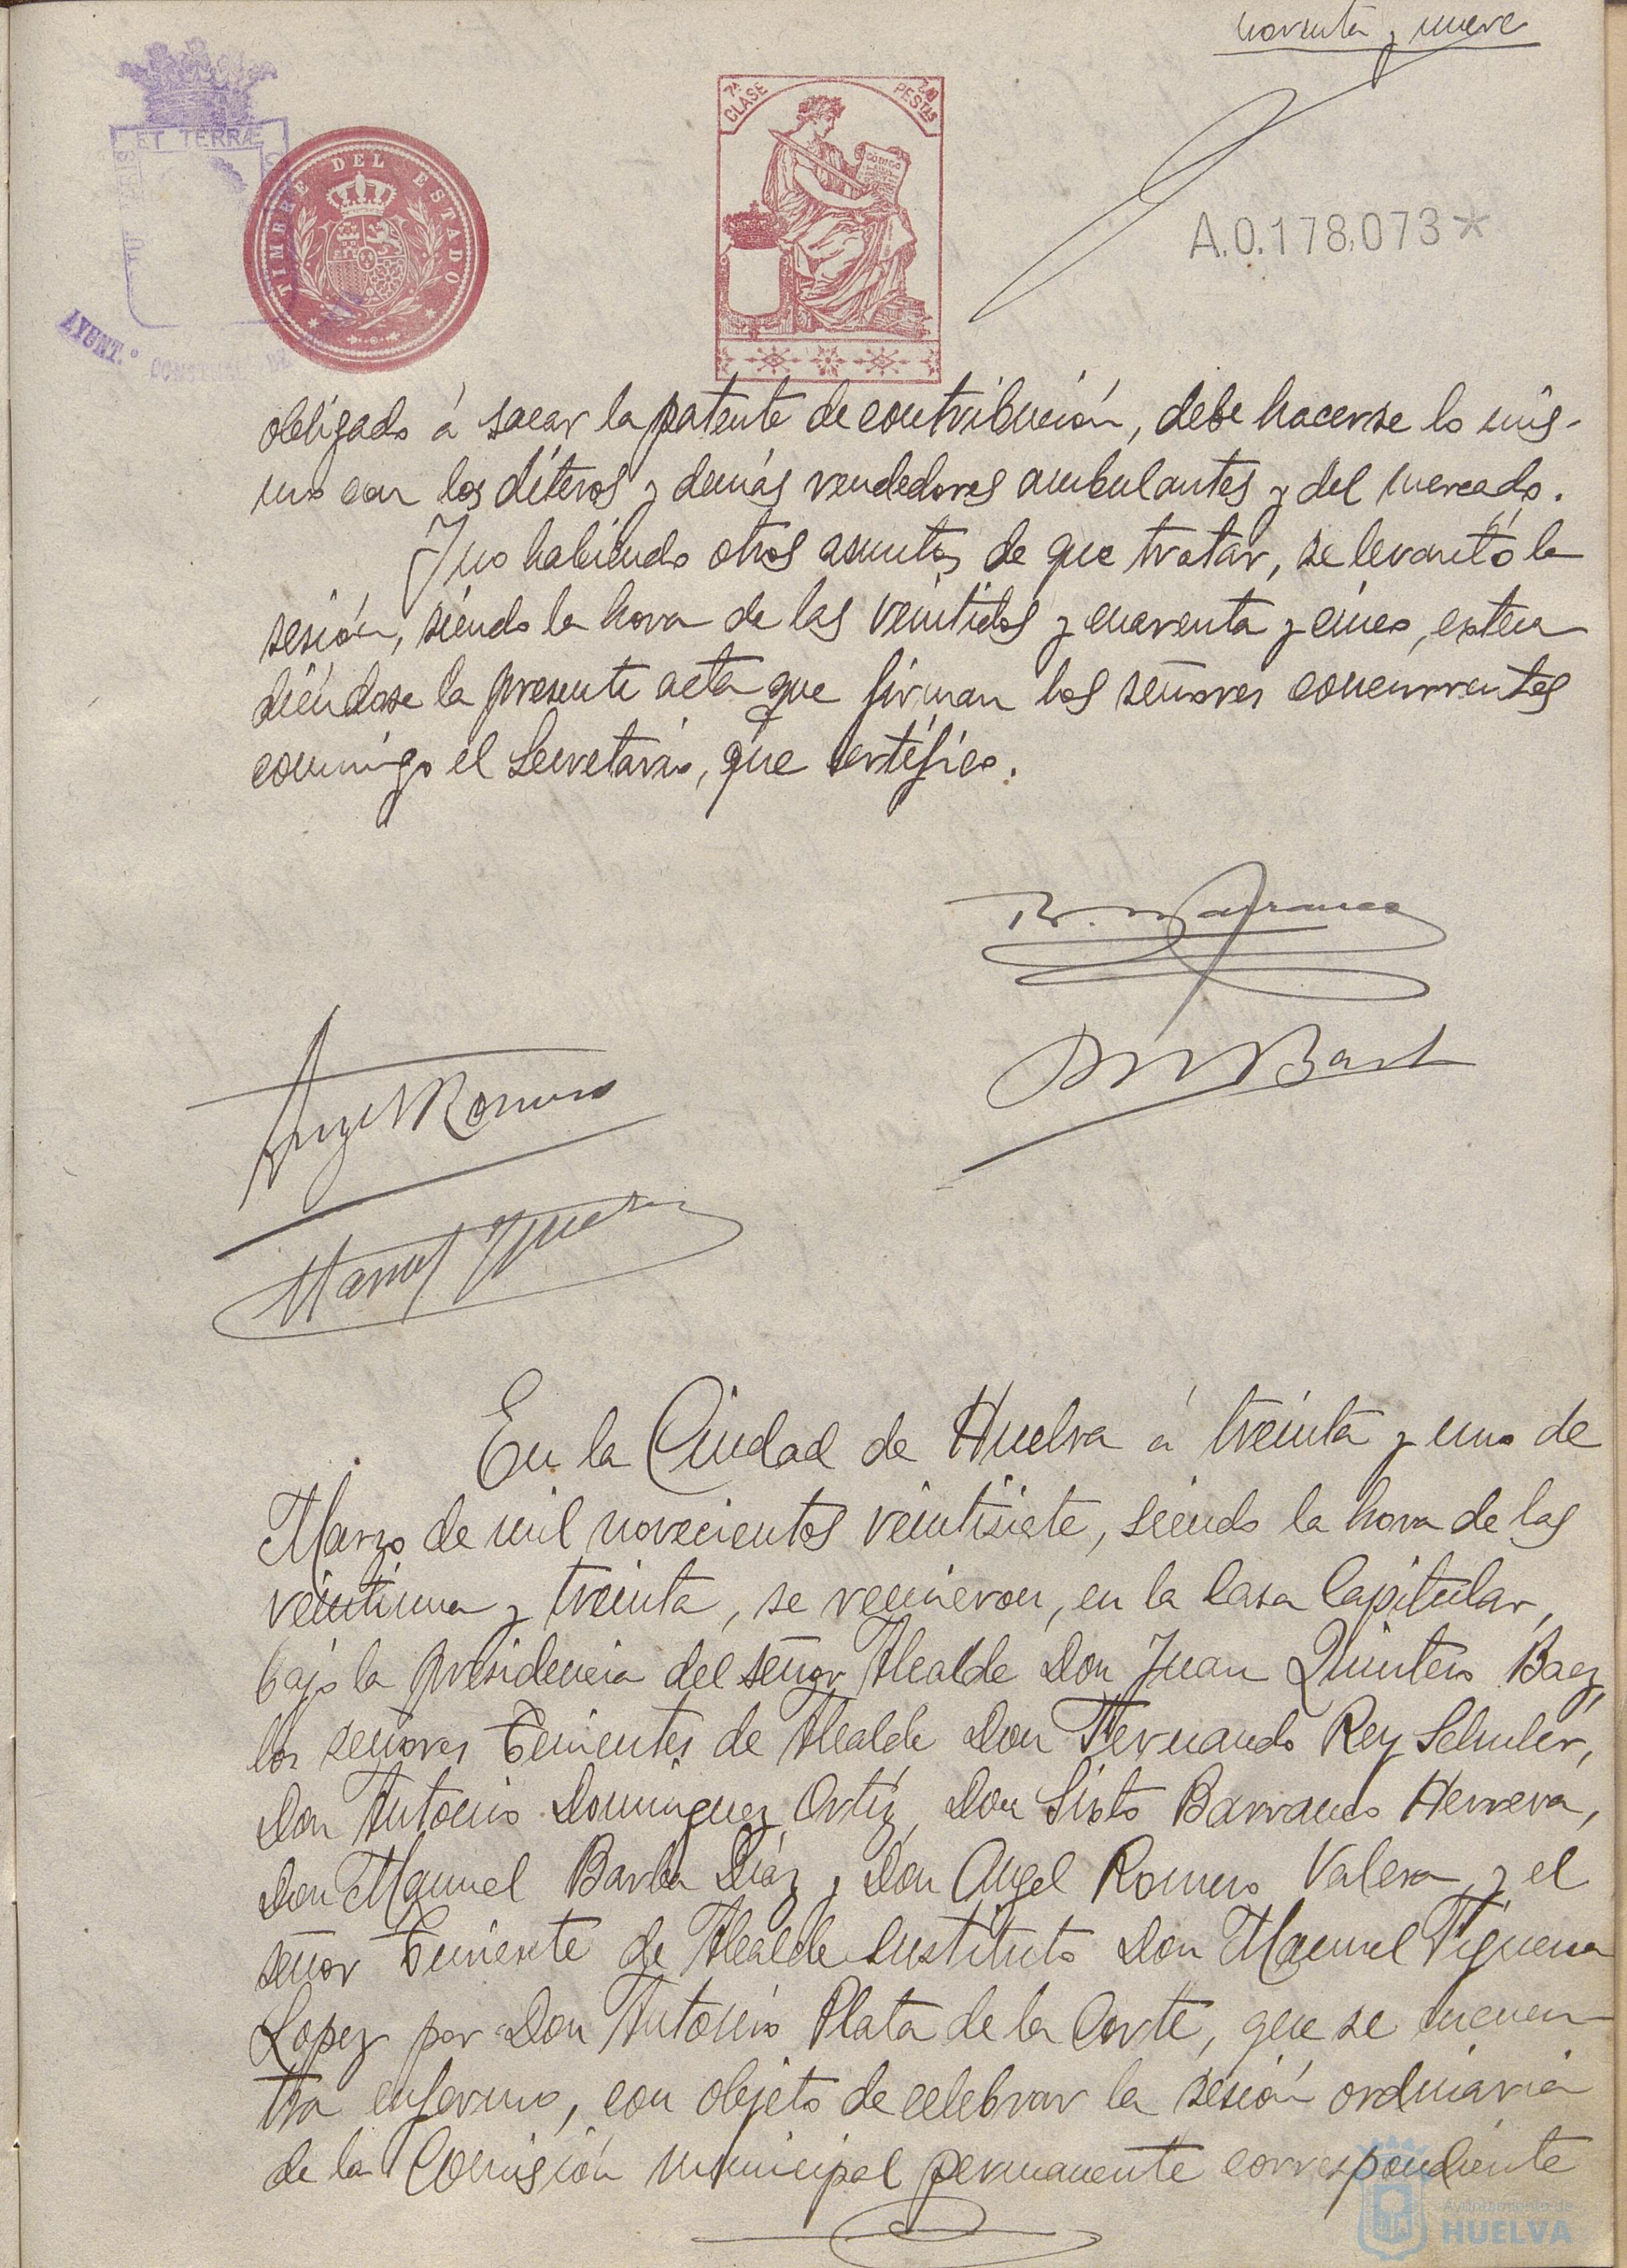 noventa y nueve
ET TERRÆ
AYUNT.º CONST
TIMBRE DEL ESTADO
7ª CLASE
PESTAS
CÓDIGO
A.0.178.073*
obligado á sacar la patente de contribución, debe hacerse lo mis-
mo con los diteros y demás vendedores ambulantes y del mercado.
Y no habiendo otros asuntos de que tratar, se levantó la
sesión, siendo la hora de las veintidos y cuarenta y cinco, exten
diéndose la presente acta que firman los señores concurrentes
conmigo el Secretario, que certifico.
Bart
Angel Romero
Manuel
En la Ciudad de Huelva á treinta y uno de
Marzo de mil novecientos veintisiete, siendo la hora de las
veintiuna y treinta, se reunieron, en la Casa Capitular,
bajo la presidencia del señor Alcalde Don Juan Quintero Baez,
los señores Tenientes de Alcalde Don Fernando Rey Schuler,
Don Antonio Dominguez Ortiz, Don Sixto Barranco Herrera,
Don Manuel Barba Díaz y Don Angel Romero Valera y el
señor Teniente de Alcalde Sustituto Don Manuel Figueroa
Lopez por Don Antonio Plata de la Corte, que se encuen-
tra enfermo, con objeto de celebrar la sesión ordinaria
de la Comisión municipal permanente correspondiente
Ayuntamiento de
HUELVA